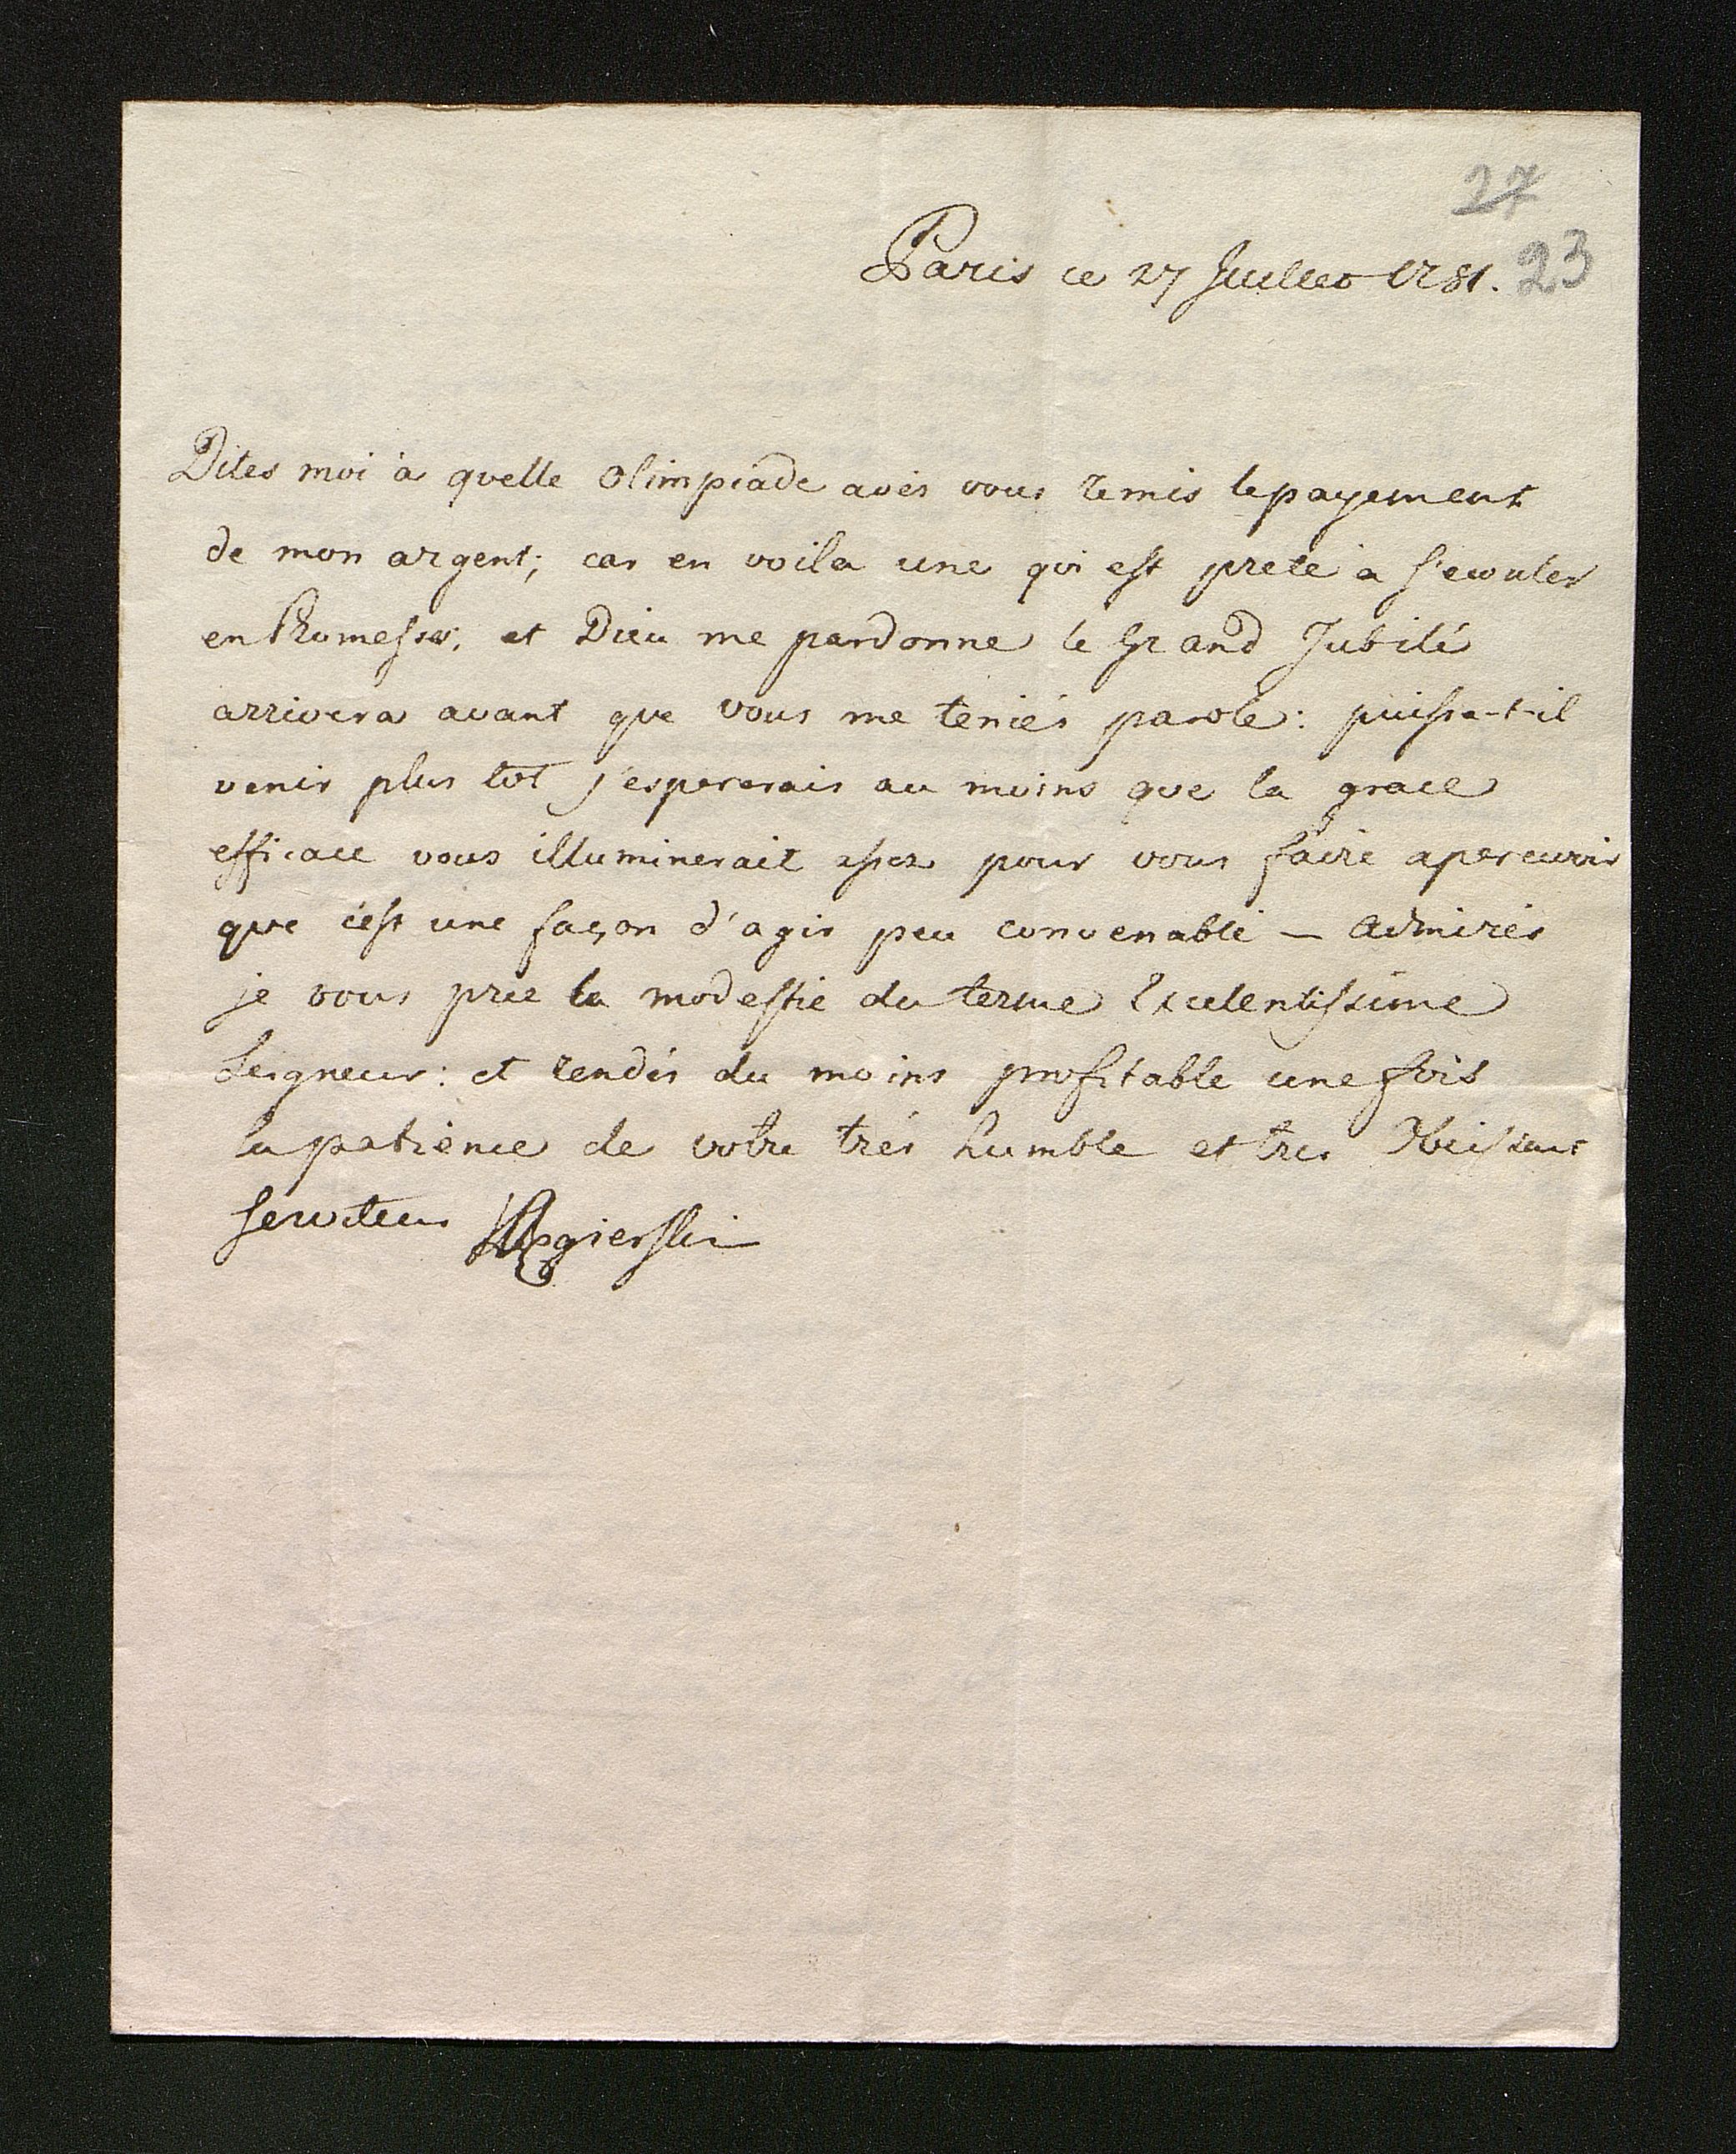 27
Paris ce 27 Juillet 1781. 23
Dites moi à quelle Olimpiade avés vous remis le payement
de mon argent; car en voila une qui est prete a s'ecouler
en Promesses; et Dieu me pardonne le Grand Jubilé
arrivera avant que vous me teniés parole: puisse-t-il
venir plus tot j'espererais au moins que la grace
efficace vous illuminerait assez pour vous faire apercevoir
que c'est une façon d'agir peu convenable — admirés
je vous prie la modestie du terme Excelentissime
Seigneur: et rendés du moins profitable une fois
la patience de votre trés humble et tres Obeissant
serviteur Wegierski